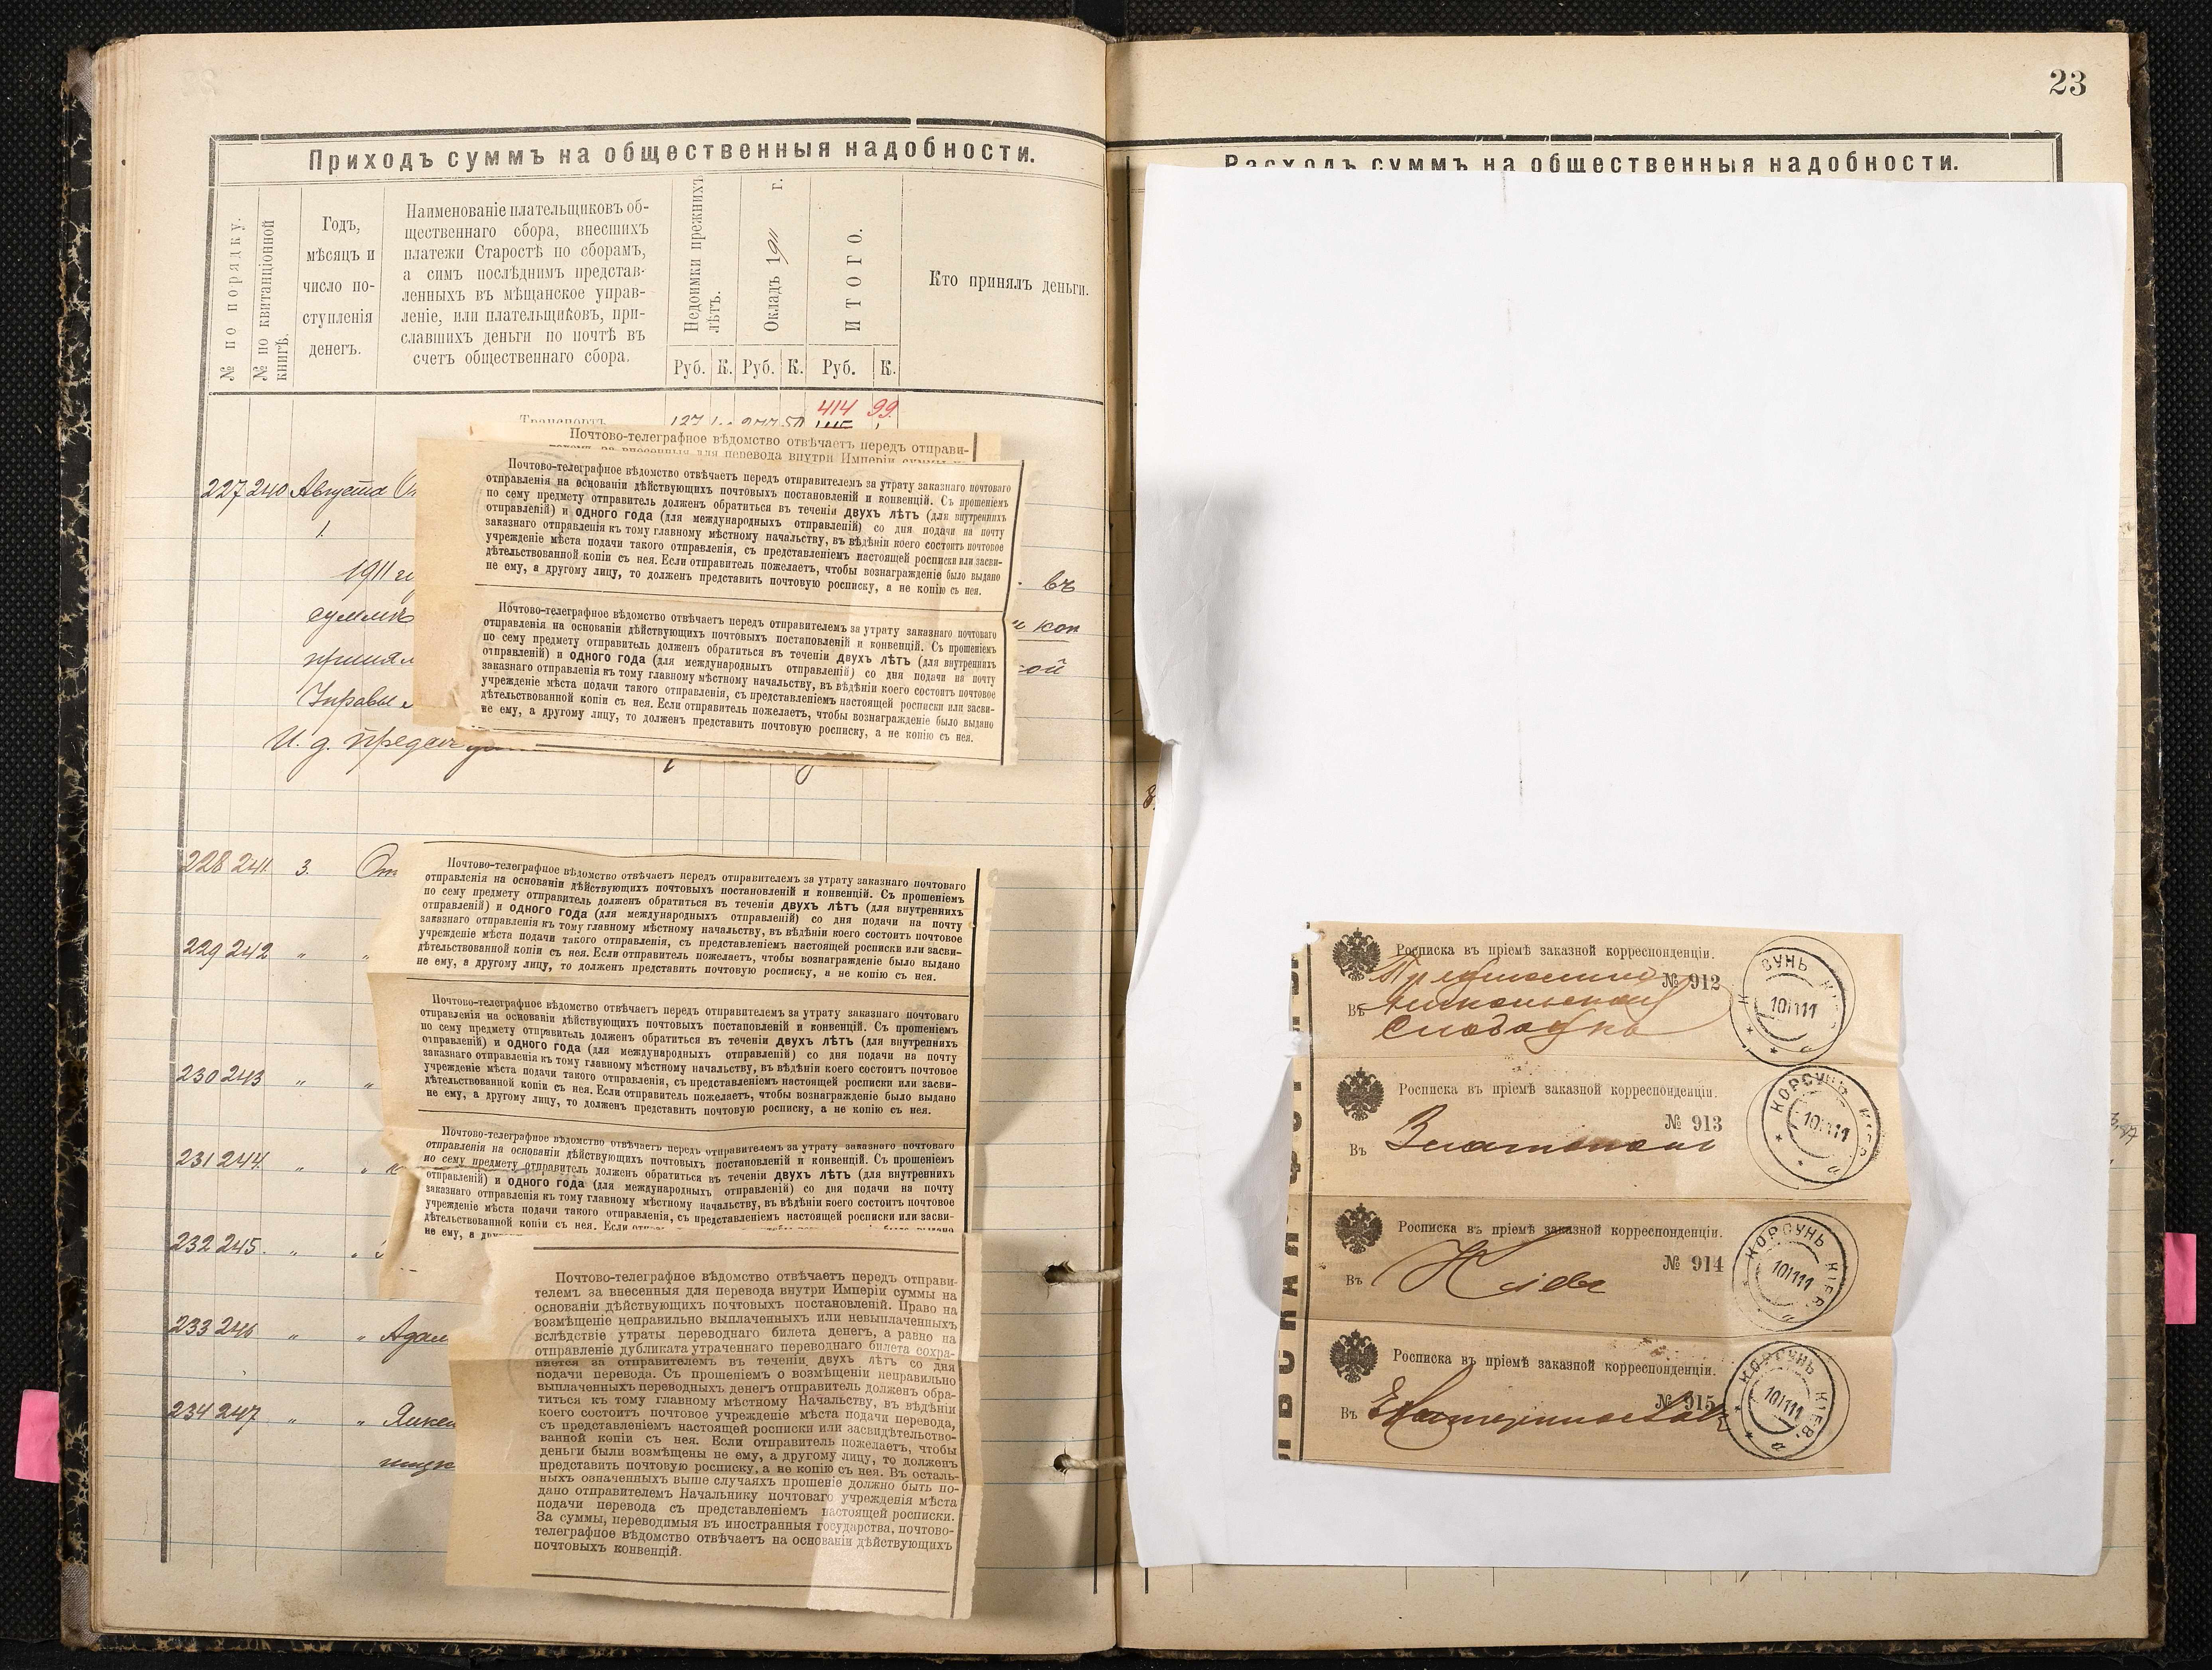 23
Приходъ суммъ на общественныя надобности.
№ по порядку.
№ по квитанціонной книгѣ.
Годъ,
мѣсяцъ и
число по-
ступленія
денегъ.
Наименованіе плательщиковъ об-
щественнаго сбора, внесшихъ
платежи Старостѣ по сборамъ,
а симъ послѣднимъ представ-
ленныхъ въ мѣщанское управ-
леніе, или плательщиковъ, при-
славшихъ деньги по почтѣ въ
счетъ общественнаго сбора.
Недоимки прежнихъ
лѣтъ.
Окладъ 1911 г.
ИТОГО.
Кто принялъ деньги.
Руб. К. Руб. К. Руб. К.
414 99.
Транспортъ 127 277 50
Почтово-телеграфное вѣдомство отвѣчаетъ передъ отправи-
телемъ за внесенныя для перевода внутри Имперіи суммы на
227 240 Августа
1.
1911
въ
суммѣ
коп
принял
кой
Управы
И. д. предсѣ
Почтово-телеграфное вѣдомство отвѣчаетъ передъ отправителемъ за утрату заказнаго почтоваго
отправленія на основаніи дѣйствующихъ почтовыхъ постановленій и конвенцій. Съ прошеніемъ
по сему предмету отправитель долженъ обратиться въ теченіи двухъ лѣтъ (для внутреннихъ
отправленій) и одного года (для международныхъ отправленій) со дня подачи на почту
заказнаго отправленія къ тому главному мѣстному начальству, въ вѣдѣніи коего состоитъ почтовое
учрежденіе мѣста подачи такого отправленія, съ представленіемъ настоящей росписки или засви-
дѣтельствованной копіи съ нея. Если отправитель пожелаетъ, чтобы вознагражденіе было выдано
не ему, а другому лицу, то долженъ представить почтовую росписку, а не копію съ нея.
Почтово-телеграфное вѣдомство отвѣчаетъ передъ отправителемъ за утрату заказнаго почтоваго
отправленія на основаніи дѣйствующихъ почтовыхъ постановленій и конвенцій. Съ прошеніемъ
по сему предмету отправитель долженъ обратиться въ теченіи двухъ лѣтъ (для внутреннихъ
отправленій) и одного года (для международныхъ отправленій) со дня подачи на почту
заказнаго отправленія къ тому главному мѣстному начальству, въ вѣдѣніи коего состоитъ почтовое
учрежденіе мѣста подачи такого отправленія, съ представленіемъ настоящей росписки или засви-
дѣтельствованной копіи съ нея. Если отправитель пожелаетъ, чтобы вознагражденіе было выдано
не ему, а другому лицу, то долженъ представить почтовую росписку, а не копію съ нея.
228 241. 3. От
229 242 " "
230 243 " "
231 244. " "
232 245. " "
233 246 " " Адам
234 247 " "
Почтово-телеграфное вѣдомство отвѣчаетъ передъ отправителемъ за утрату заказнаго почтоваго
отправленія на основаніи дѣйствующихъ почтовыхъ постановленій и конвенцій. Съ прошеніемъ
по сему предмету отправитель долженъ обратиться въ теченіи двухъ лѣтъ (для внутреннихъ
отправленій) и одного года (для международныхъ отправленій) со дня подачи на почту
заказнаго отправленія къ тому главному мѣстному начальству, въ вѣдѣніи коего состоитъ почтовое
учрежденіе мѣста подачи такого отправленія, съ представленіемъ настоящей росписки или засви-
дѣтельствованной копіи съ нея. Если отправитель пожелаетъ, чтобы вознагражденіе было выдано
не ему, а другому лицу, то долженъ представить почтовую росписку, а не копію съ нея.
Почтово-телеграфное вѣдомство отвѣчаетъ передъ отправителемъ за утрату заказнаго почтоваго
отправленія на основаніи дѣйствующихъ почтовыхъ постановленій и конвенцій. Съ прошеніемъ
по сему предмету отправитель долженъ обратиться въ теченіи двухъ лѣтъ (для внутреннихъ
отправленій) и одного года (для международныхъ отправленій) со дня подачи на почту
заказнаго отправленія къ тому главному мѣстному начальству, въ вѣдѣніи коего состоитъ почтовое
учрежденіе мѣста подачи такого отправленія, съ представленіемъ настоящей росписки или засви-
дѣтельствованной копіи съ нея. Если отправитель пожелаетъ, чтобы вознагражденіе было выдано
не ему, а другому лицу, то долженъ представить почтовую росписку, а не копію съ нея.
Почтово-телеграфное вѣдомство отвѣчаетъ передъ отправителемъ за утрату заказнаго почтоваго
отправленія на основаніи дѣйствующихъ почтовыхъ постановленій и конвенцій. Съ прошеніемъ
по сему предмету отправитель долженъ обратиться въ теченіи двухъ лѣтъ (для внутреннихъ
отправленій) и одного года (для международныхъ отправленій) со дня подачи на почту
заказнаго отправленія къ тому главному мѣстному начальству, въ вѣдѣніи коего состоитъ почтовое
учрежденіе мѣста подачи такого отправленія, съ представленіемъ настоящей росписки или засви-
дѣтельствованной копіи съ нея. Если
не ему, а
Почтово-телеграфное вѣдомство отвѣчаетъ передъ отправи-
телемъ за внесенныя для перевода внутри Имперіи суммы на
основаніи дѣйствующихъ почтовыхъ постановленій. Право на
возмѣщеніе неправильно выплаченныхъ или невыплаченныхъ
вслѣдствіе утраты переводнаго билета денегъ, а равно на
отправленіе дубликата утраченнаго переводнаго билета сохра-
няется за отправителемъ въ теченіи двухъ лѣтъ со дня
подачи перевода. Съ прошеніемъ о возмѣщеніи неправильно
выплаченныхъ переводныхъ денегъ отправитель долженъ обра-
титься къ тому главному мѣстному Начальству, въ вѣдѣніи
коего состоитъ почтовое учрежденіе мѣста подачи перевода,
съ представленіемъ настоящей росписки или засвидѣтельство-
ванной копіи съ нея. Если отправитель пожелаетъ, чтобы
деньги были возмѣщены не ему, а другому лицу, то долженъ
представить почтовую росписку, а не копію съ нея. Въ осталь-
ныхъ означенныхъ выше случаяхъ прошеніе должно быть по-
дано отправителемъ Начальнику почтоваго учрежденія мѣста
подачи перевода съ представленіемъ настоящей росписки.
За суммы, переводимыя въ иностранныя государства, почтово-
телеграфное вѣдомство отвѣчаетъ на основаніи дѣйствующихъ
почтовыхъ конвенцій.
Расходъ суммъ на общественныя надобности.
Росписка въ пріемѣ заказной корреспонденціи.
№ 912
Въ
Слободку
Росписка въ пріемѣ заказной корреспонденціи.
№ 913
Въ Златополь
КОРСУНЬ КІЕВ.
Росписка въ пріемѣ заказной корреспонденціи.
№ 914
Въ Кіевъ
КОРСУНЬ КІЕВ.
Росписка въ пріемѣ заказной корреспонденціи.
№ 915
Въ Екатеринославъ
КОРСУНЬ КІЕВ.